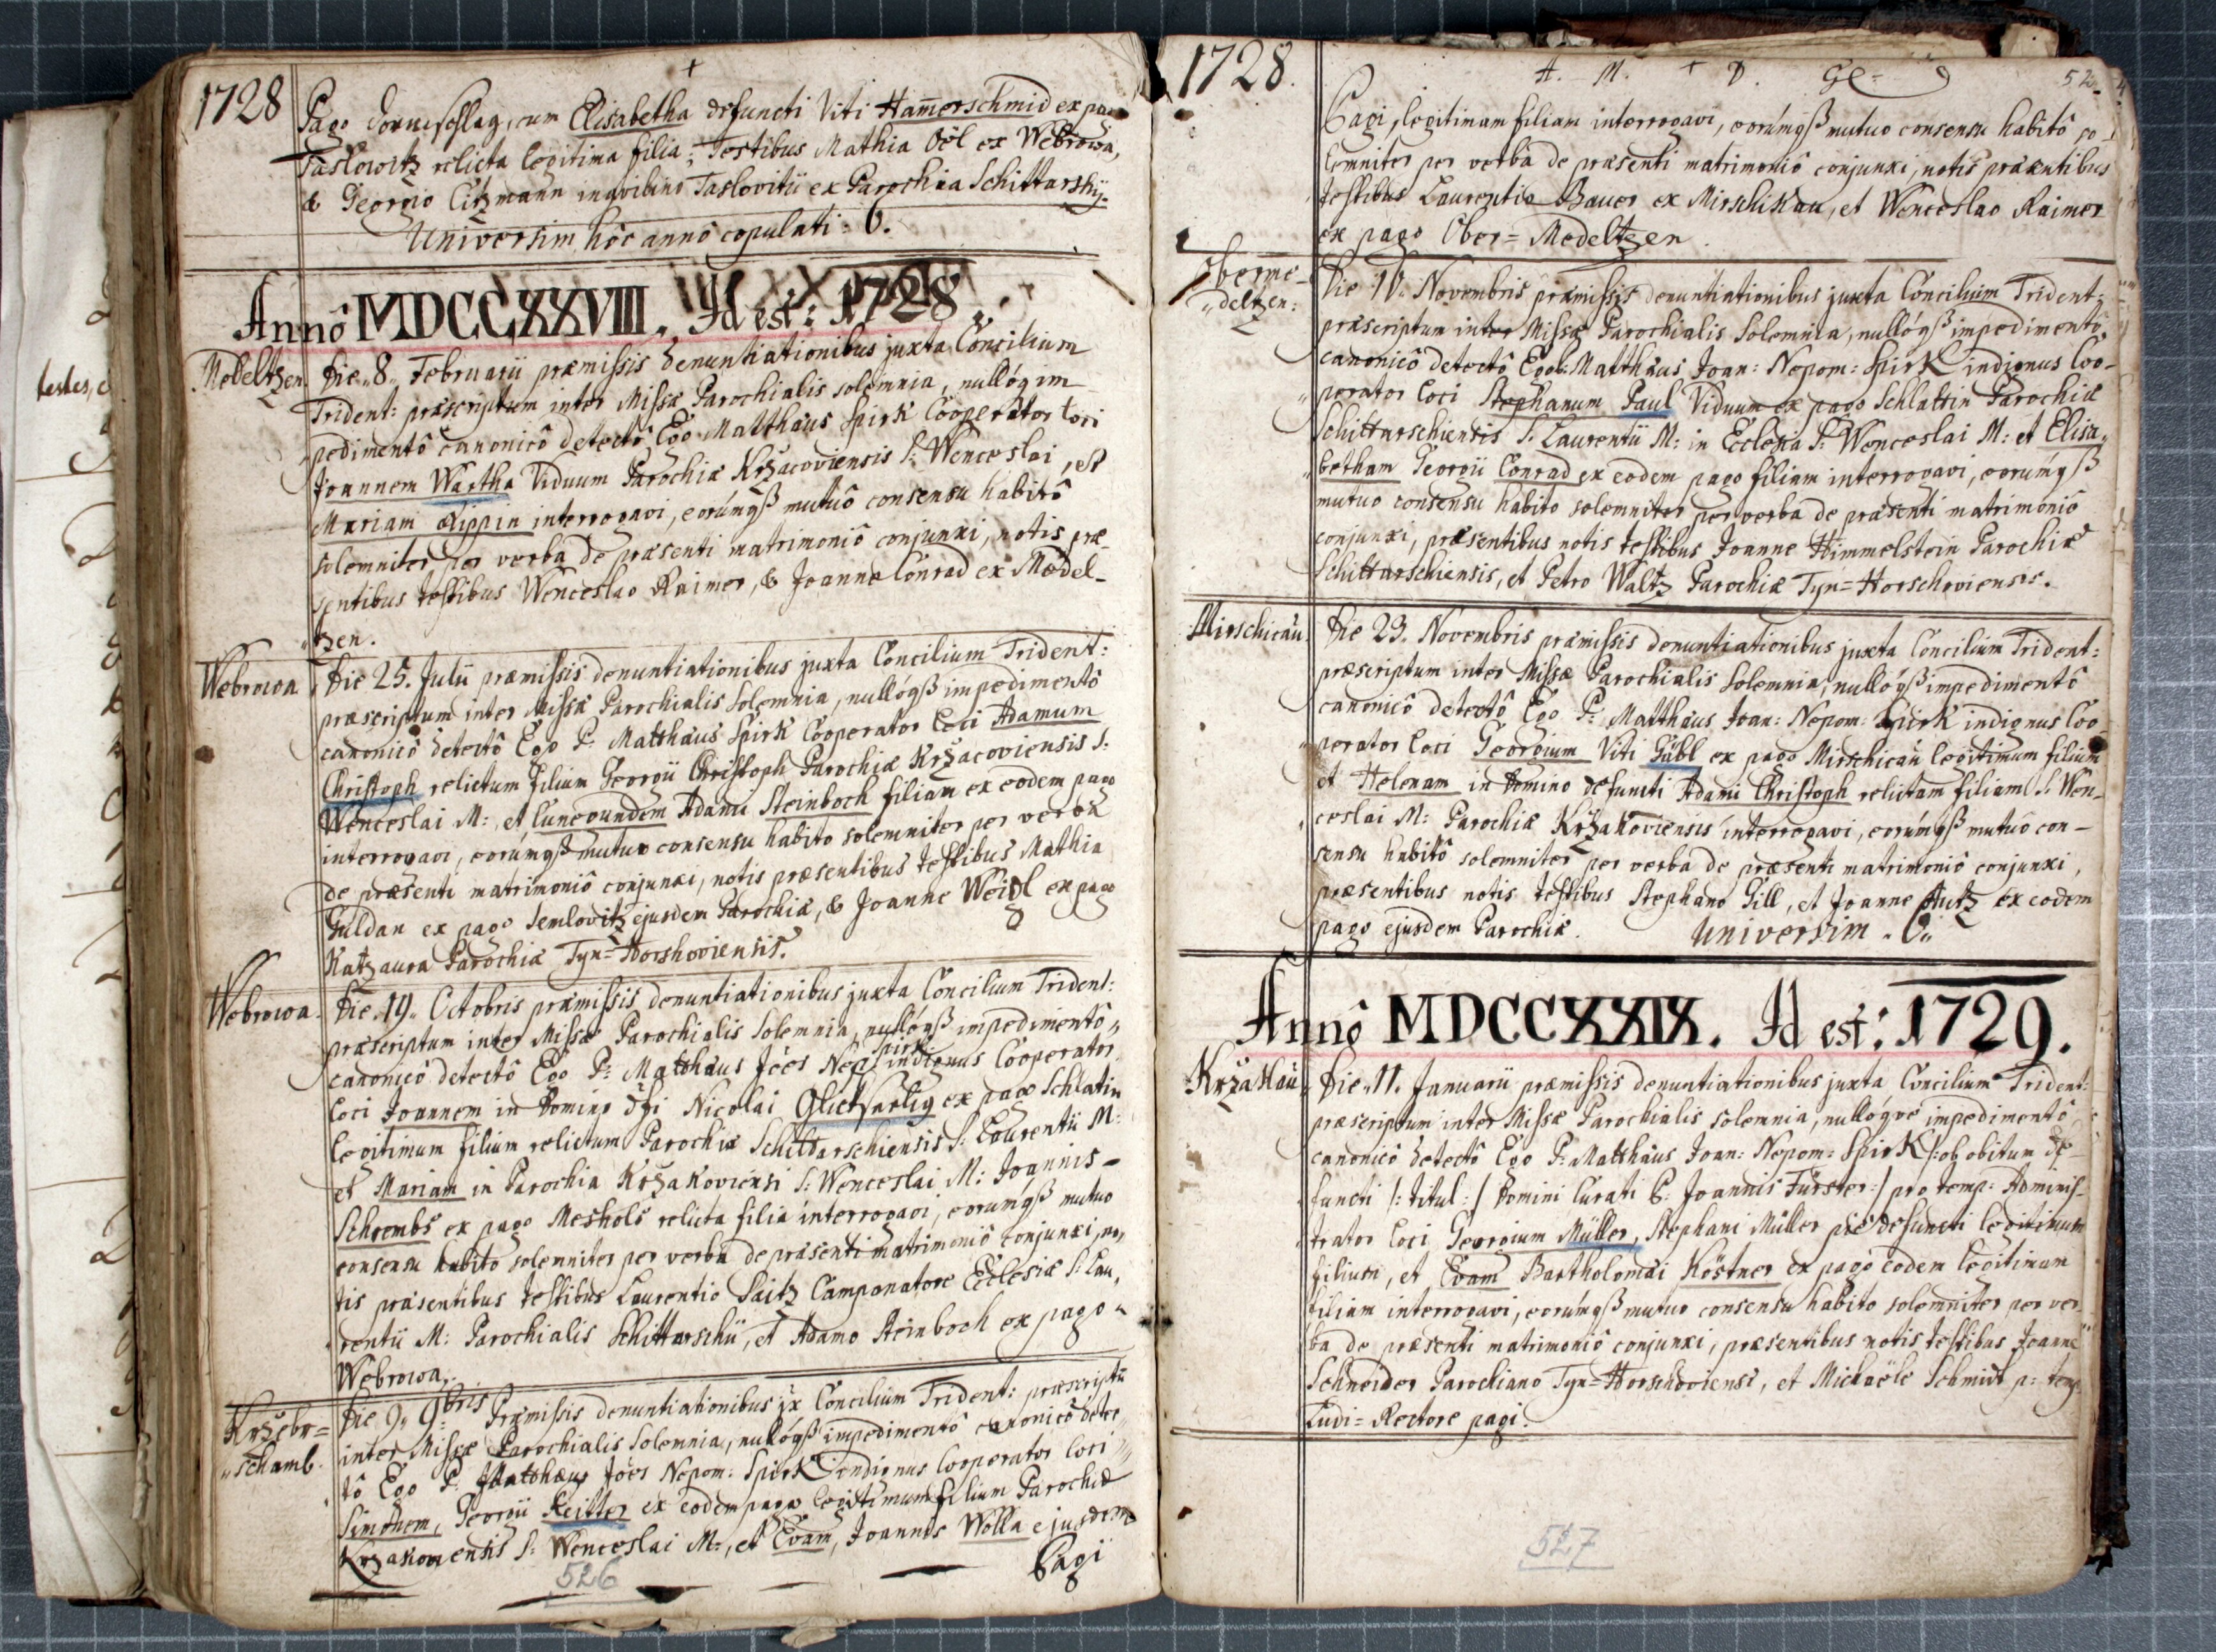 1728
Pago Dorneschlag, cum Elisabetha defuncti Viti Ham̄erschmid ex pago
Taslowitz relicta legitima filia; Testibus Mathia Öel ex Webrowa,
& Georgio Citzmann inquilino Taslovitii ex Parochia Schittarshÿ.
Universim hôc annô copulati: 6.
Annô MDCCXXVIII. Id est: 1728.
Medeltzen. Die „8„ Februarii præmissis denuntiationibus juxta Concilium
Trident: præscriptum inter Missæ Parochialis solemnia, nullóq im
pedimentô canonicô detectô Ego Matthæus Spirk Cooperator loci
Joannem Wartha Viduum Parochiæ Kržacoviensis S: Wenceslai, et
Mariam Rippin interrogavi, eorúmqß mutuô consensu habitô
solemniter per verba de præsenti matrimoniô conjunxi, notis præ-
sentibus testibus Wenceslao Raimer, & Joanne Conrad ex Medel-
„tzen.
Webrowa Die 25. Julii præmissis denuntiationibus juxta Concilium Trident:
præscriptum inter Missæ Parochialis Solemnia, nullóqß impedimentô
canonicô detectô Ego P: Matthæus Spirk Cooperator loci Adamum
Christoph relictum filium Georgii Christoph Parochiæ Kržacoviensis S:
Wenceslai M:, et Cunegundem Adami Steinboch filiam ex eodem pago
interrogavi, eorúmqß mutuo consensu habito solemniter per verba
de præsenti matrimoniô conjunxi, notis præsentibus testibus Mathia
Guldan ex pago Semlovitz ejusdem Parochiæ, & Joanne Weidl ex pago
Katzaura Parochiæ Tyn=Horshoviensis.
Webrowa. Die „19„ Octobris præmissis denuntiationibus juxta Concilium Trident:
præscriptum inter Missæ Parochialis Solemnia, nullóqß impedimentô„
canonicô detectô Ego P: Matthæus Jöes Nep: Spirk indignus Cooperator
loci Joannem in Domino dfti Nicolai Glicksselig ex pago Schlatin
legitimum filium relictum Parochiæ Schittarschiensis S: Laurentii M:
et Mariam in Parochia Kržakoviensi S: Wenceslai M: Joannis-
Schrembs ex pago Meshols relicta filia interrogavi, eorumqß mutuo
consensu habito solemniter per verba de præsenti matrimoniô conjunxi, no„
tis præsentibus testibus Laurentio Saitz Campanatore Ecclesiæ S: Lau„
rentii M: Parochialis Schittarschii, et Adamo Steinboch ex pago„
Webrowa.
Kržebr= Die 9„ 9bris Præmissis denuntiationibus jx Concilium Trident: præscriptū
„schamb. inter Missæ Parochialis Solemnia, nullóqß impedimentô canonicô detec„
tô Ego P: Matthæus Jöes Nepom: Spirk indignus Cooperator loci
Simonem, Georgii Reitter ex eodem pago legitimum filium Parochiæ
Kržakoviensis S: Wenceslai M:, et Evam, Joannis Wolla ejusdem
Pagi
526
1728.
A. M. + D. Gl= 52
Pagi, legitimam filiam interrogavi, eorúmqß mutuo consensu habitô so-
lemniter per verba de præsenti matrimoniô conjunxi, notis præsentibus
testibus Laurentio Bauer ex Mirschikau, et Wenceslao Raimer
ex pago Ober=Medeltzen.
Oberme= Die 10. Novembris præmissis denuntiationibus juxta Concilium Trident:
„deltzen: præscriptum inter Missæ Parochialis Solemnia, nullóqß impedimentô
canonicô detectô Ego P: Matthæus Joan: Nepom: Spirk indignus Coo-
„perator loci Stephanum Paul Viduum ex pago Schlattin Parochiæ
Schittarschiensis S: Laurentii M: in Ecclesia S: Wenceslai M: et Elisa„
„betham Georgii Conrad ex eodem pago filiam interrogavi, eorúmqß
mutuo consensu habito solemniter per verba de præsenti matrimoniô
conjunxi, præsentibus notis testibus Joanne Himmelstein Parochiæ
Schittarschiensis, et Petro Waltz Parochiæ Tyn=Horschoviensis.
Mirschicau. Die 23. Novembris præmissis denuntiationibus juxta Concilium Trident:
præscriptum inter Missæ Parochialis Solemnia, nullóqß impedimentô
canonicô detectô Ego P: Matthæus Joan: Nepom: Spirk indignus Coo-
„perator loci Georgium Viti Gübl ex pago Mirschicau legitimum filium
et Helenam in Domino defuncti Adami Christoph relictam filiam S: Wen-
„ceslai M: Parochiæ Kržakoviensis interrogavi, eorúmqß mutuô con-
sensu habitô solemniter per verba de præsenti matrimoniô conjunxi,
præsentibus notis testibus Stephano Gill, et Joanne Autz ex eodem
pago ejusdem Parochiæ. Universim „6„
Annô MDCCXXIX. Id est: 1729.
Kržakau Die „11. Januarii præmissis denuntiationibus juxta Concilium Trident:
præscriptum inter Missæ Parochialis solemnia, nullóqve impedimentô
canonicô detectô Ego P: Matthæus Joan: Nepom: Spirk /: ob obitum de-
functi /: titul :/ Domini Curati P: Joannis Fürster :/ pro temp: Adminis-
trator loci Georgium Müller, Stephani Müller piè defuncti legitimum
filium, et Evam Bartholomæi Köstner ex pago eodem legitimam
filiam interrogavi, eorúmqß mutuo consensu habito solemniter per ver„
ba de præsenti matrimoniô conjunxi, præsentibus notis testibus Joanne
Schneider Parochiano Tyn=Horschoviensi, et Michaële Schmidt p: temp:
Ludi=Rectore pagi.
527